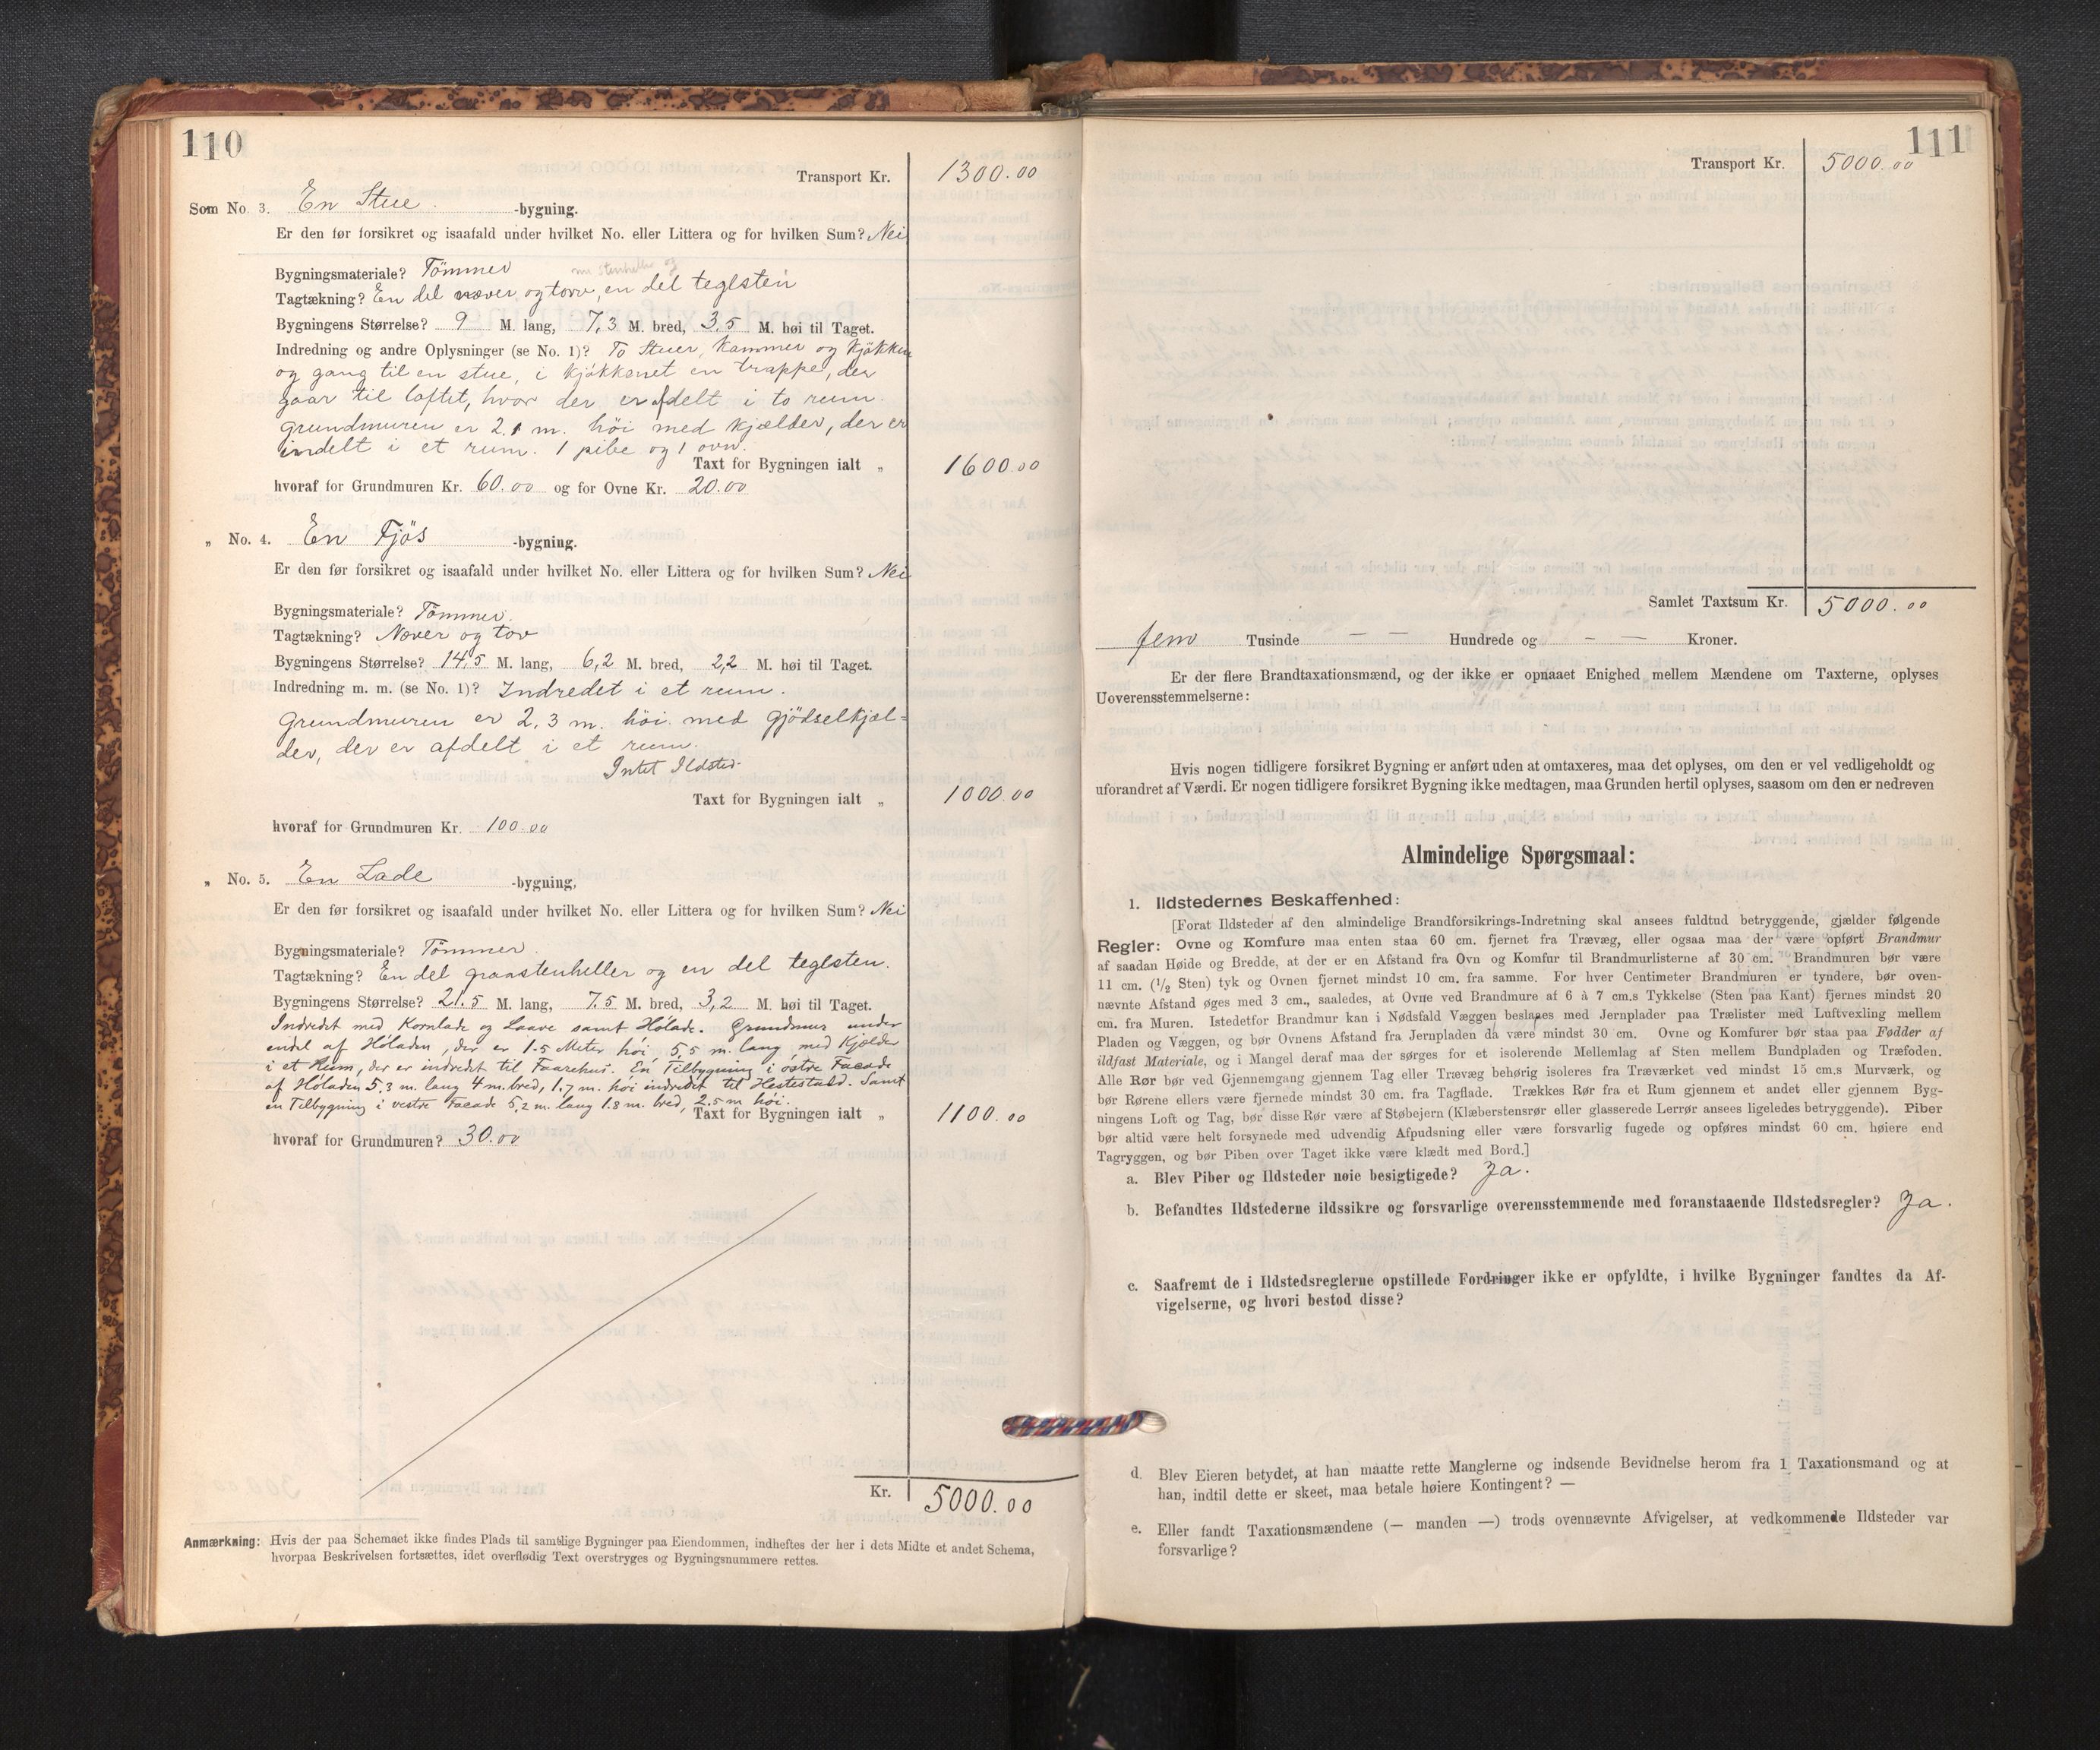 110
Transport Kr. 1300.00
Som No. 3. En Stue. -bygning.
Er den før forsikret og isaafald under hvilket No. eller Littera og for hvilken Sum? Nei
Bygningsmateriale? Tömmer
Tagtækning? En del næver og torv, en del teglsten
Bygningens Størrelse? 9 M. lang, 7,3 M. bred, 3,5 M. høi til Taget.
Indredning og andre Oplysninger (se No. 1)? To Stuer, Kammer og Kjøkken
og gang til en stue, i kjøkkenet en trappe, der
gaar til loftet, hvor der er afdelt i to rum.
Grundmuren er 2,1 m. höi med Kjælder, der er
indelt i et rum. 1 pibe og 1 ovn.
Taxt for Bygningen ialt „ 1600.00
hvoraf for Grundmuren Kr. 60.00 og for Ovne Kr. 20.00
„ No. 4. En Fjös -bygning.
Er den før forsikret og isaafald under hvilket No. eller Littera og for hvilken Sum? Nei
Bygningsmateriale? Tømmer.
Tagtækning? Næver og tov
Bygningens Størrelse? 14,5 M. lang, 6,2 M. bred, 2,2 M. høi til Taget.
Indredning m. m. (se No. 1)? Indredet i et rum.
Grundmuren er 2,3 m. höi med gjødselkjæl-
der, der er afdelt i et rum.
Intet Ildsted.
Taxt for Bygningen ialt „ 1000.00
hvoraf for Grundmuren Kr. 100.00
„ No. 5. En Lade -bygning,
Er den før forsikret og isaafald under hvilket No. eller Littera og for hvilken Sum? Nei
Bygningsmateriale? Tömmer.
Tagtækning? En del graastenheller og en del teglsten.
Bygningens Størrelse? 21.5 M. lang, 7.5 M. bred, 3,2 M. høi til Taget.
Indredet med Kornlade og Laave samt Hölade. Grundmur under
endel af Höladen, der er 1.5 Meter höi, 5,5 m. lang med Kjælder
i et Rum, der er indredet til Faarehus. En Tilbygning i östre Facade
af Höladen 5,3 m. lang 4 m. bred, 1,7 m. höi indredet til Hestestald. Samt
en Tilbygning i vestre Facade 5,2 m. lang 1.8 m. bred, 2.5 m höi.
Taxt for Bygningen ialt „ 1100.00
hvoraf for Grundmuren? 30.00
Kr. 5000.00
Anmærkning: Hvis der paa Schemaet ikke findes Plads til samtlige Bygninger paa Eiendommen, indheftes der her i dets Midte et andet Schema,
hvorpaa Beskrivelsen fortsættes, idet overflødig Text overstryges og Bygningsnummere rettes.
111
Transport Kr. 5000.00
Samlet Taxtsum Kr. 5000.00
fem Tusinde — — Hundrede og — — Kroner.
Er der flere Brandtaxationsmænd, og der ikke er opnaaet Enighed mellem Mændene om Taxterne, oplyses
Uoverensstemmelserne:
Hvis nogen tidligere forsikret Bygning er anført uden at omtaxeres, maa det oplyses, om den er vel vedligeholdt og
uforandret af Værdi. Er nogen tidligere forsikret Bygning ikke medtagen, maa Grunden hertil oplyses, saasom om den er nedreven
Almindelige Spørgsmaal:
1. Ildstedernes Beskaffenhed:
[Forat Ildsteder af den almindelige Brandforsikrings-Indretning skal ansees fuldtud betryggende, gjælder følgende
Regler: Ovne og Komfure maa enten staa 60 cm. fjernet fra Trævæg, eller ogsaa maa der være opført Brandmur
af saadan Høide og Bredde, at der er en Afstand fra Ovn og Komfur til Brandmurlisterne af 30 cm. Brandmuren bør være
11 cm. (½ Sten) tyk og Ovnen fjernet mindst 10 cm. fra samme. For hver Centimeter Brandmuren er tyndere, bør oven-
nævnte Afstand øges med 3 cm., saaledes, at Ovne ved Brandmure af 6 à 7 cm.s Tykkelse (Sten paa Kant) fjernes mindst 20
cm. fra Muren. Istedetfor Brandmur kan i Nødsfald Væggen beslaaes med Jernplader paa Trælister med Luftvexling mellem
Pladen og Væggen, og bør Ovnens Afstand fra Jernpladen da være mindst 30 cm. Ovne og Komfurer bør staa paa Fødder af
ildfast Materiale, og i Mangel deraf maa der sørges for et isolerende Mellemlag af Sten mellem Bundpladen og Træfoden.
Alle Rør bør ved Gjennemgang gjennem Tag eller Trævæg behørig isoleres fra Træværket ved mindst 15 cm.s Murværk, og
bør Rørene ellers være fjernede mindst 30 cm. fra Tagflade. Trækkes Rør fra et Rum gjennem et andet eller gjennem Byg-
ningens Loft og Tag, bør disse Rør være af Støbejern (Klæberstensrør eller glasserede Lerrør ansees ligeledes betryggende). Piber
bør altid være helt forsynede med udvendig Afpudsning eller være forsvarlig fugede og opføres mindst 60 cm. høiere end
Tagryggen, og bør Piben over Taget ikke være klædt med Bord.]
a. Blev Piber og Ildsteder nøie besigtigede? Ja.
b. Befandtes Ildstederne ildssikre og forsvarlige overensstemmende med foranstaaende Ildstedsregler? Ja.
c. Saafremt de i Ildstedsreglerne opstillede Fordringer ikke er opfyldte, i hvilke Bygninger fandtes da Af-
vigelserne, og hvori bestod disse?
d. Blev Eieren betydet, at han maatte rette Manglerne og indsende Bevidnelse herom fra 1 Taxationsmand og at
han, indtil dette er skeet, maa betale høiere Kontingent? —
e. Eller fandt Taxationsmændene (— manden —) trods ovennævnte Afvigelser, at vedkommende Ildsteder var
forsvarlige?